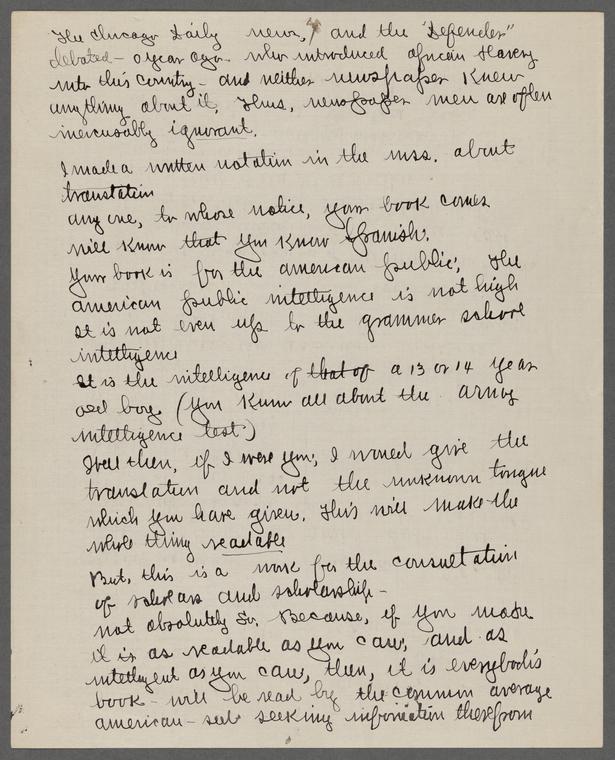 The Chicago Daily news, and the "Defender"
debated - a year ago - who introduced african History
into this country - and neither newspaper knew
anything about it, Thus, newspaper men are often
inexcusably ignorant.
I made a written notation in the mss. about
translation
any one, to whose notice, your book comes
will know that you know Spanish.
Your book is for the american public; The
american public intelligence is not high
It is not even up to the grammer school
intelligence
It is the intelligence of that of a 13 or 14 year
old boy (You know all about the army
intelligence test.)
Well then, if I were you, I would give the
translation and not the unknown tongue
which you have given. This will make the
whole thing readable
But, this is a work for the consultation
of scholars and scholarship -
not absolutely so. Because, if you make
it is as readable as you can, and as
intelligent as you can, then, it is everybody's
book - will be read by the common average
american - seeking information therefrom